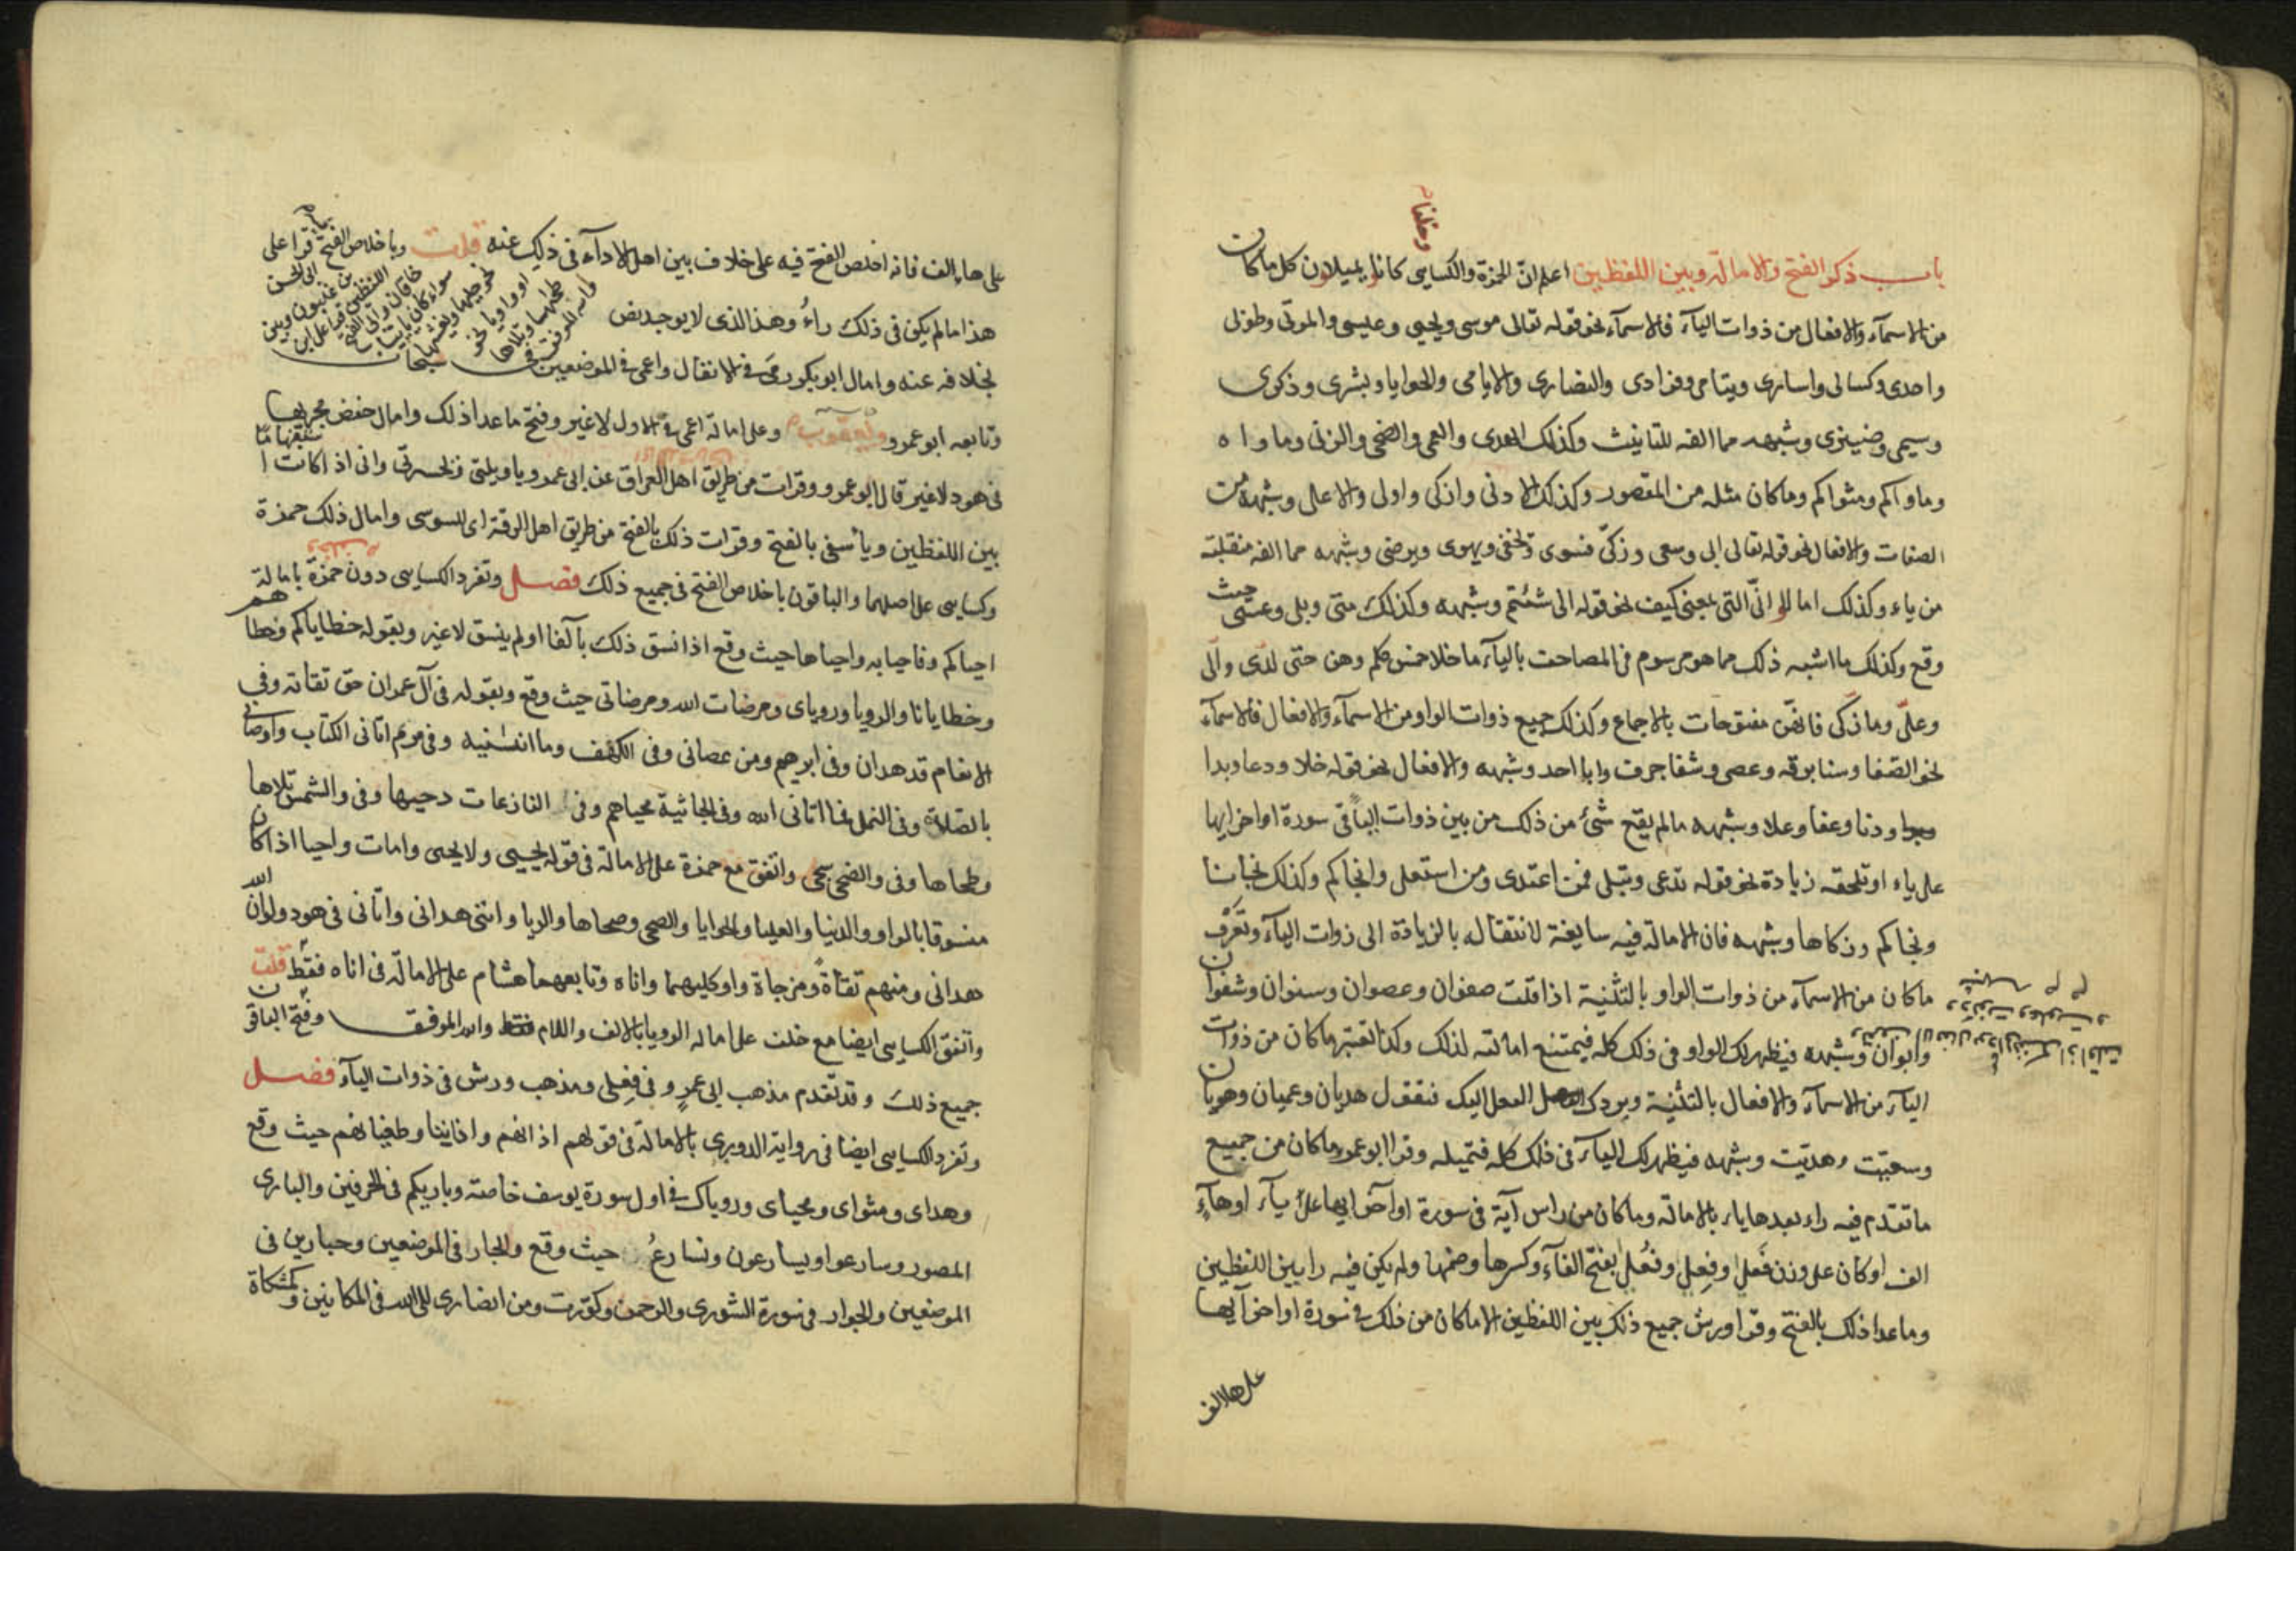 وخلفا
باب ذكر الفتح والامالة وبين اللفظين اعلم انّ الحمزة والكساىي كانا يميلان كل ما كان
من الاسمآء والافعال من ذوات اليآء فالاسمآء نحو قوله تعالى موسى ويحيى وعيسى والموتى وطوبى
واحدى وكسالى واسارى ويتامى وفرادى والنصارى والايامى والحوايا وبشرى وذكرى
وسيمى وضيزى وشبهه مما الفه للتانيث وكذلك الهدى والعمى والضحى والزنى وماواه
وماواكم ومثواكم وما كان مثله من المقصور وكذلك الادنى وازكى واولى والاعلى وشبهه من
الصفات والافعال نحو قوله تعالى ابى وسعى وزكّى فسوى وتخفى ويهوى ويرضى وشبهه مما الفه منقلبته
من ياء وكذلك امالوا انّى التى بمعنى كيف نحو قوله انى شئتم وشبهه وكذلك متى وبلى وعسى حيث
وقع وكذلك ما اشبه ذلك مما هو مرسوم فى المصاحف باليآء ما خلا خمس كلم وهن حتى لدى والى
وعلى وما زكى فانهّن مفتوحات بالاجماع وكذلك جميع ذوات الواو من الاسمآء والافعال فالاسمآء
نحو الصّفا وسنا برقه وعصى وشفا جرف وابا احد وشبهه والافعال نحو قوله خلا ودعا وبدا
ودنا وعفا وعلا وشبهه مالم يقع شئ من ذلك من بين ذوات اليآء فى سورة اواخر ايها
على ياء او تلحقه زيادة نحو قوله تدعى وتبلى فمن اعتدى ومن استعلى وانجاكم وكذلك نجانا
ونجاكم وزكاها وشبهه فان الامالة فيه سايغة لانتقاله بالزيادة الى ذوات اليآء وتعرف
ما كان من الاسمآء من ذوات الواو بالتثنية اذا قلت صفوان وعصوان وسنوان وشفوان
وابوان وشبهه فيظهر لك الواو فى ذلك كله فيمتنع امالته لذلك وكذا تعتبر ما كان من ذوات
اليآء من الاسمآء والافعال بالتثنية ويردك الفعل اليك فتقول هديان وعميان وهويان
وسعيت وهديت وشبهه فيظهر لك اليآء فى ذلك كله فتميله وقرا ابو عمرو ما كان من جميع
ما تقدم فيه راء بعدها ياء بالامالة وما كان من راس آية فى سورة اواخر ايها على يآء او هاء
الف او كان على وزن فَعلى وفِعلى وفُعلى بفتح الفآء وكسرها وضمها ولم يكن فيه را بين اللفظين
وما عدا ذلك بالفتح وقرا ورش جميع ذلك بين اللفظين الا ما كان من ذلك فى سورة اواخر آيها
على ها الف
على هاء الف فانه اخلص الفتح فيه على خلاف بين اهل الادآء فى ذلك عنه قلت وباخلاص الفتح قرا على
هذا ما لم يكن فى ذلك راءُ وهذا الذى لا يوجد نص
بخلافه عنه وامال ابو بكر رمى فى الانفال واعمى فى الموضعين فى سبحان
وتابعه ابو عمرو ويعقوب وعلى امالة اعمى فى الاول لا غير وفتح ما عدا ذلك وامال حفص مجريها
فى هود لا غير قال ابو عمرو وقرات من طريق اهل العراق عن ابى عمرو يا ويلتى ويحسرتى وانى اذا كانت
بين اللفظين ويا سفى بالفتح وقرات ذلك بالفتح من طريق اهل الرقة اى للسوسى وامال ذلك حمزة
وكساىي على اصلهما والباقون باخلاص الفتح فى جميع ذلك فصل وتفرد الكساىي دون حمزة بامالة
احياكم وفاحيا به واحياها حيث وقع اذا نسق ذلك بآلفا او لم ينسق لا غير وبقوله خطاياكم وخطاياهم
وخطايانا والرويا وروياى ومرضات الله ومرضاتى حيث وقع وبقوله فى آل عمران حق تقاته وفى
الانعام قد هدان وفى ابرهيم ومن عصانى وفى الكهف وما انسٰنيه وفى مريم اتانى الكتاب واوصانى
بالصّلاة وفى النمل فما اتانى الله وفى الجاثية محياهم وفى النازعات دحيها وفى والشمس تلاها
وطحاها وفى والضحى سجى واتفق مع حمزة على الامالة فى قوله يحيى ولا يحيى وامات واحيا اذا كان
منسوقا بالواو والدنيا والعليا والحوايا والضحى وضحاها والربا واننى هدانى واتانى فى هود ولو ان الله
هدانى ومنهم تقاةً ومزجاة واو كليهما واناه وتابعهما هشام على الامالة فى اناه فقط قلت
واتفق الكساىي ايضا مع خلف على امالة الرويا بالالف واللام فقط والله الموفق وفتح الباقون
جميع ذلك وقد تقدم مذهب ابى عمرٍو فى فِعلى ومذهب ورش فى ذوات اليآء فصل
وتفرد الكساىي ايضا فى رواية الدورى بالامالة فى قولهم اذانهم واذاننا وطغيانهم حيث وقع
وهداى ومثواى ومحياى ورويـاك فى اول سورة يوسف خاصته وباريكم فى الحرفين والبارى
المصور وسارعوا ويسارعون ونسارعُ حيث وقع والجار فى الموضعين وجبارين فى
الموضعين والجوار فى سورة الشورى والرحمن وكورت ومن انصارى الى الله فى المكانين وكمشكاة